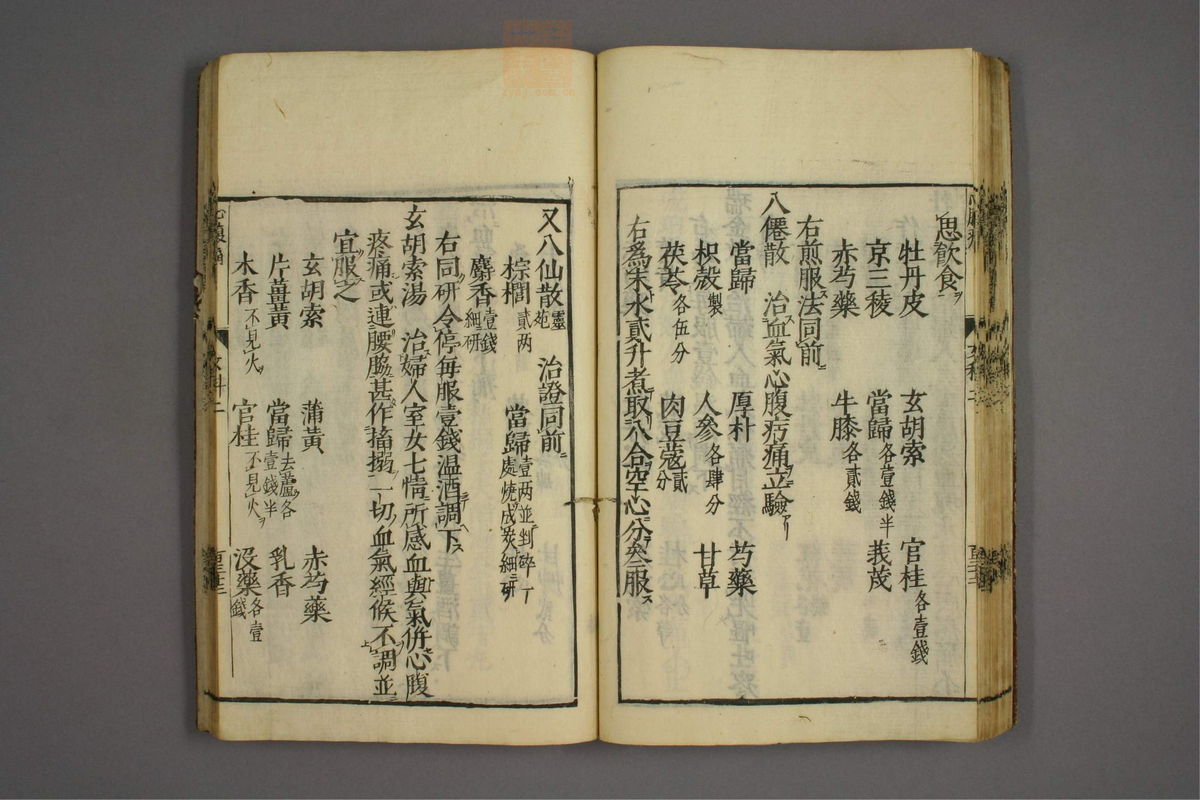 思飲食
牡丹皮　玄胡索　官桂各壹錢
京三稜　當歸各壹錢半　莪茂
赤芍藥　牛膝各貳錢
右煎服法同前
八僊散　治血氣心腹㽱痛立驗
當歸　厚朴　芍藥
枳殼製　人參各肆分　甘草
茯苓各伍分　肉豆蔻貳分
右爲末水貳升煮取八合空心分叁服
又八仙散靈苑　治證同前
棕櫚貳两　當歸壹两並剉碎一處燒成炭細研
麝香壹錢細研
右同研令停每服壹錢温酒調下
玄胡索湯　治婦人室女七情所感血與氣併心腹
疼痛或連腰脇甚作搐搦一切血氣經候不調並
宜服之
玄胡索　蒲黃　赤芍藥
片薑黃　當歸去蘆各壹錢半　乳香
木香不見火　官桂不見火　沒藥各壹錢